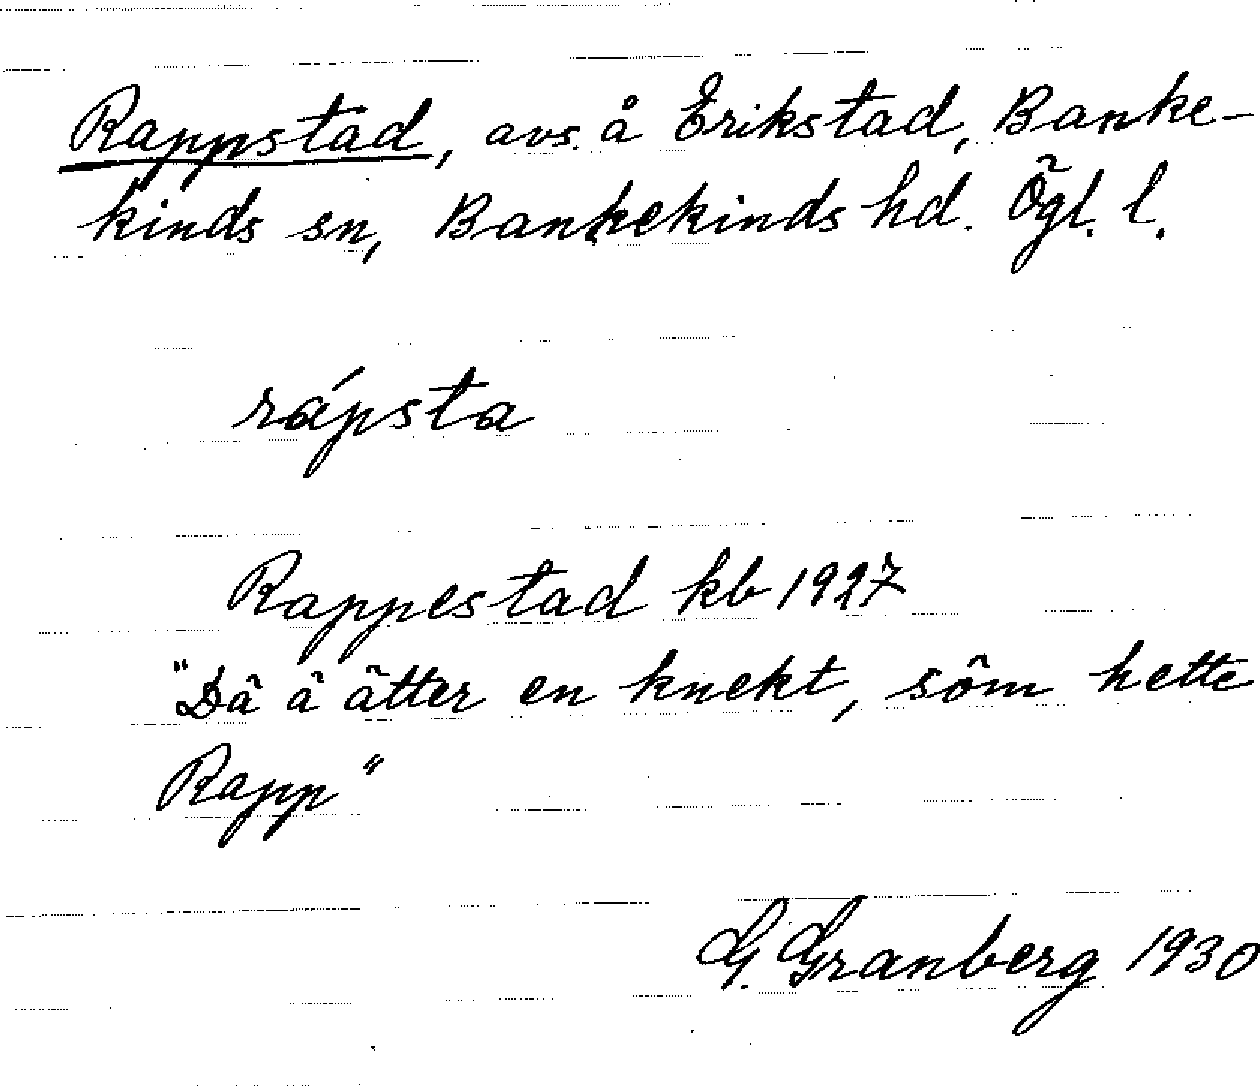 Rappstad, avs. å Erikstad, Banke-
kinds sn, Bankekinds hd. Ögl. l.
rápsta
Rappestad kb 1927
"Dâ â âtter en knekt, sôm hette
Rapp"
G. Granberg 1930